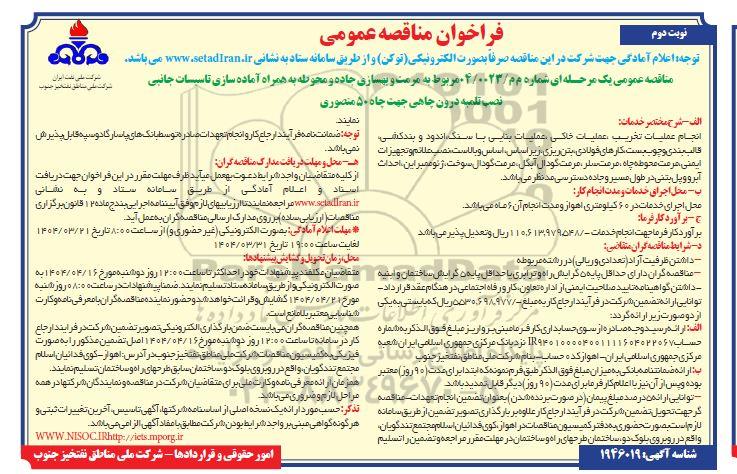 نوبت دوم
فراخوان مناقصه عمومی
شرکت ملی نفت ایران
شرکت ملی مناطق نفتخیز جنوب
توجه: اعلام آمادگی جهت شرکت در این مناقصه صرفاً بصورت الکترونیکی (توکن) و از طریق سامانه ستاد به نشانی www.setadIran.ir می باشد.
مناقصه عمومی یک مرحله ای شماره م م/۰۴/۰۰۲۳ مربوط به مرمت و بهسازی جاده و محوطه به همراه آماده سازی تاسیسات جانبی
نصب تلمبه درون چاهی جهت چاه ۵۰ منصوری
الف- شرح مختصر خدمات:
انجام عملیات تخریب ،عملیات خاکی ،عملیات بنایی با سنگ،اندود و بندکشی،
قالب بندی و چوب بست،کارهای فولادی،بتن ریزی، زیراساس، اساس و بالاست،نصب علائم و تجهیزات
ایمنی،مرمت محوطه چاه ، مرمت سلر، مرمت گودال آتشگل، مرمت گودال سوخت، ژئوممبر این، احداث
آبرو و پل بتنی در طول مسیر و جاده دسترسی مدنظر می باشد.
ب- محل اجرای خدمات و مدت انجام کار:
محل اجرای خدمات در ۶۰ کیلومتری اهواز و مدت انجام آن ۶ ماه می باشد.
ج- برآورد کارفرما:
برآورد کارفرما جهت انجام خدمات -/۱۱۰,۶۱۳,۹۷۹,۵۴۸ ریال و تعدیل پذیر می باشد
د- شرایط مناقصه گران متقاضی:
-داشتن ظرفیت آزاد(تعدادی و ریالی) در رشته مربوطه
-مناقصه گران دارای حداقل پایه ۵ گرایش راه و ترابری یا حداقل پایه ۵ گرایش ساختمان و ابنیه
-داشتن گواهینامه تایید صلاحیت ایمنی از اداره تعاون، کار و رفاه اجتماعی در هنگام عقد قرارداد-
توانایی ارائه تضمین شرکت در فرآیند ارجاع کار به مبلغ -/۵,۵۳۰,۶۹۸,۹۷۷ ریال که بایستی به یکی
از دو صورت زیر ارائه گردد:
الف: ارائه رسید وجه صادره از سوی حسابداری کارفرما مبنی بر واریز مبلغ فوق الذکر به شماره
مرکزی جمهوری اسلامی ایران- اهواز کد حساب- بنام شرکت ملی مناطق نفتخیز جنوب
ب: ارائه ضمانتنامه بانکی به میزان مبلغ فوق الذکر طبق فرم نمونه که ابتدا برای مدت (۹۰ روز) معتبر
بوده و پس از آن نیز با اعلام کارفرما برای مدت (۹۰ روز) دیگر قابل تمدید باشد
-توانایی ارائه ده درصد مبلغ پیمان (در صورت برنده شدن) بعنوان تضمین انجام تعهدات-مناقصه
گر جهت تحویل تضمین شرکت در فرآیند ارجاع کار علاوه بر بارگذاری تصویر تضمین از طریق سامانه
لازم است بصورت حضوری به دفتر کمیسیون مناقصات در اهواز، کوی فدائیان اسلام مجتمع تندگویان،
واقع در روبروی بلوک دو، ساختمان طرحهای راه و ساختمان در مهلت مقرر مراجعه و تضمین را تسلیم
نمایند.
توجه: ضمانت نامه فرآیند ارجاع کار و انجام تعهدات صادره توسط بانک های پاسارگاد و سپه قابل پذیرش
نمی باشد.
هـ- محل و مهلت دریافت مدارک مناقصه گران:
از کلیه متقاضیان واجد شرایط دعوت بهعمل میآید ظرف مهلت مقرر در این فراخوان جهت دریافت
اسناد و اعلام آمادگی از طریق سامانه ستاد و به نشانی
www.setadIran.ir مراجعه نمایند تا ارزیابیهای لازم وفق آییننامه اجرایی بند ج ماده ۱۲ قانون برگزاری
مناقصات (ارزیابی ساده) بر روی مدارک ارسالی مناقصه گران به عمل آید.
*مهلت اعلام آمادگی: بصورت الکترونیکی (غیر حضوری) و از ساعت ۸:۰۰ تاریخ ۱۴۰۴/۰۳/۲۱
لغایت ساعت ۱۹:۰۰ تاریخ ۱۴۰۴/۰۳/۳۱
محل، زمان تحویل و گشایش پیشنهادها:
متقاضیان مکلفند پیشنهادات خود را حداکثر تا ساعت ۱۲:۰۰ روز دوشنبه مورخ ۱۴۰۴/۰۴/۱۶ به
صورت الکترونیکی و از طریق سامانه ستاد تسلیم نمایند. ضمناً پیشنهادات در ساعت ۰۸:۰۰ روز شنبه
مورخ ۱۴۰۴/۰۴/۲۱ گشایش و قرائت خواهد شد و حضور نماینده مناقصه گران با معرفی نامه و کارت
شناسایی معتبر بلامانع است.
همچنین مناقصه گران می بایست ضمن بارگذاری الکترونیکی تصویر تضمین شرکت در فرایند ارجاع
کار در سامانه تا ساعت ۱۲:۰۰ روز دوشنبه مورخ ۱۴۰۴/۰۴/۱۶ اصل تضمین مذکور را به صورت
فیزیکی به کمیسیون مناقصات شرکت ملی مناطق نفتخیز جنوب در آدرس: اهواز-کوی فدائیان اسلام
مجتمع تندگویان، واقع در روبروی بلوک دو، ساختمان سابق طرحهای راه و ساختمان تسلیم نمایند.
همزمان ارائه معرفی نامه و کارت ملی برای متقاضیان شرکت در مناقصه و نمایندگان شرکتها در همه
مراحل لازم و ضروری می باشد.
تذکر: حسب مورد ارائه یک نسخه اصلی از اساسنامه شرکتها، آگهی تاسیس، آخرین تغییرات ثبتی و
هر گونه گواهی مبنی بر واجد شرایط بودن شرکت مطابق با مفاد آگهی الزامی می باشد.
WWW.NISOC.IR http://iets.mporg.ir
شناسه آگهی: ۱۹۴۶۰۱۹
امور حقوقی و قراردادها – شرکت ملی مناطق نفتخیز جنوب